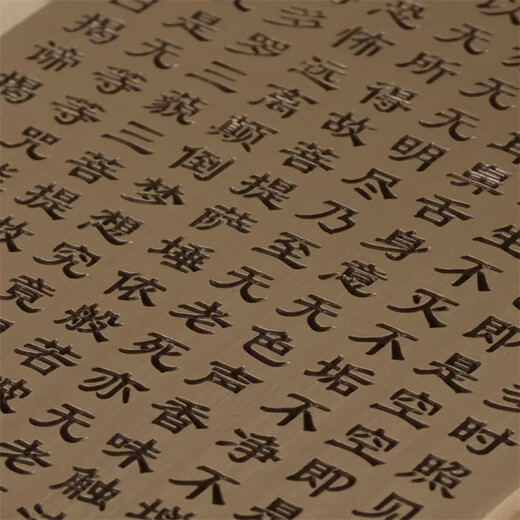 时照见
即是空空即是
生不灭不垢不净不增
耳鼻舌身意无色声香味触
无无明尽乃至无老死亦无老
无所得故菩提萨埵依般若波
恐怖远离颠倒梦想究竟
多罗三藐三菩提故
是无等等咒能
揭谛揭